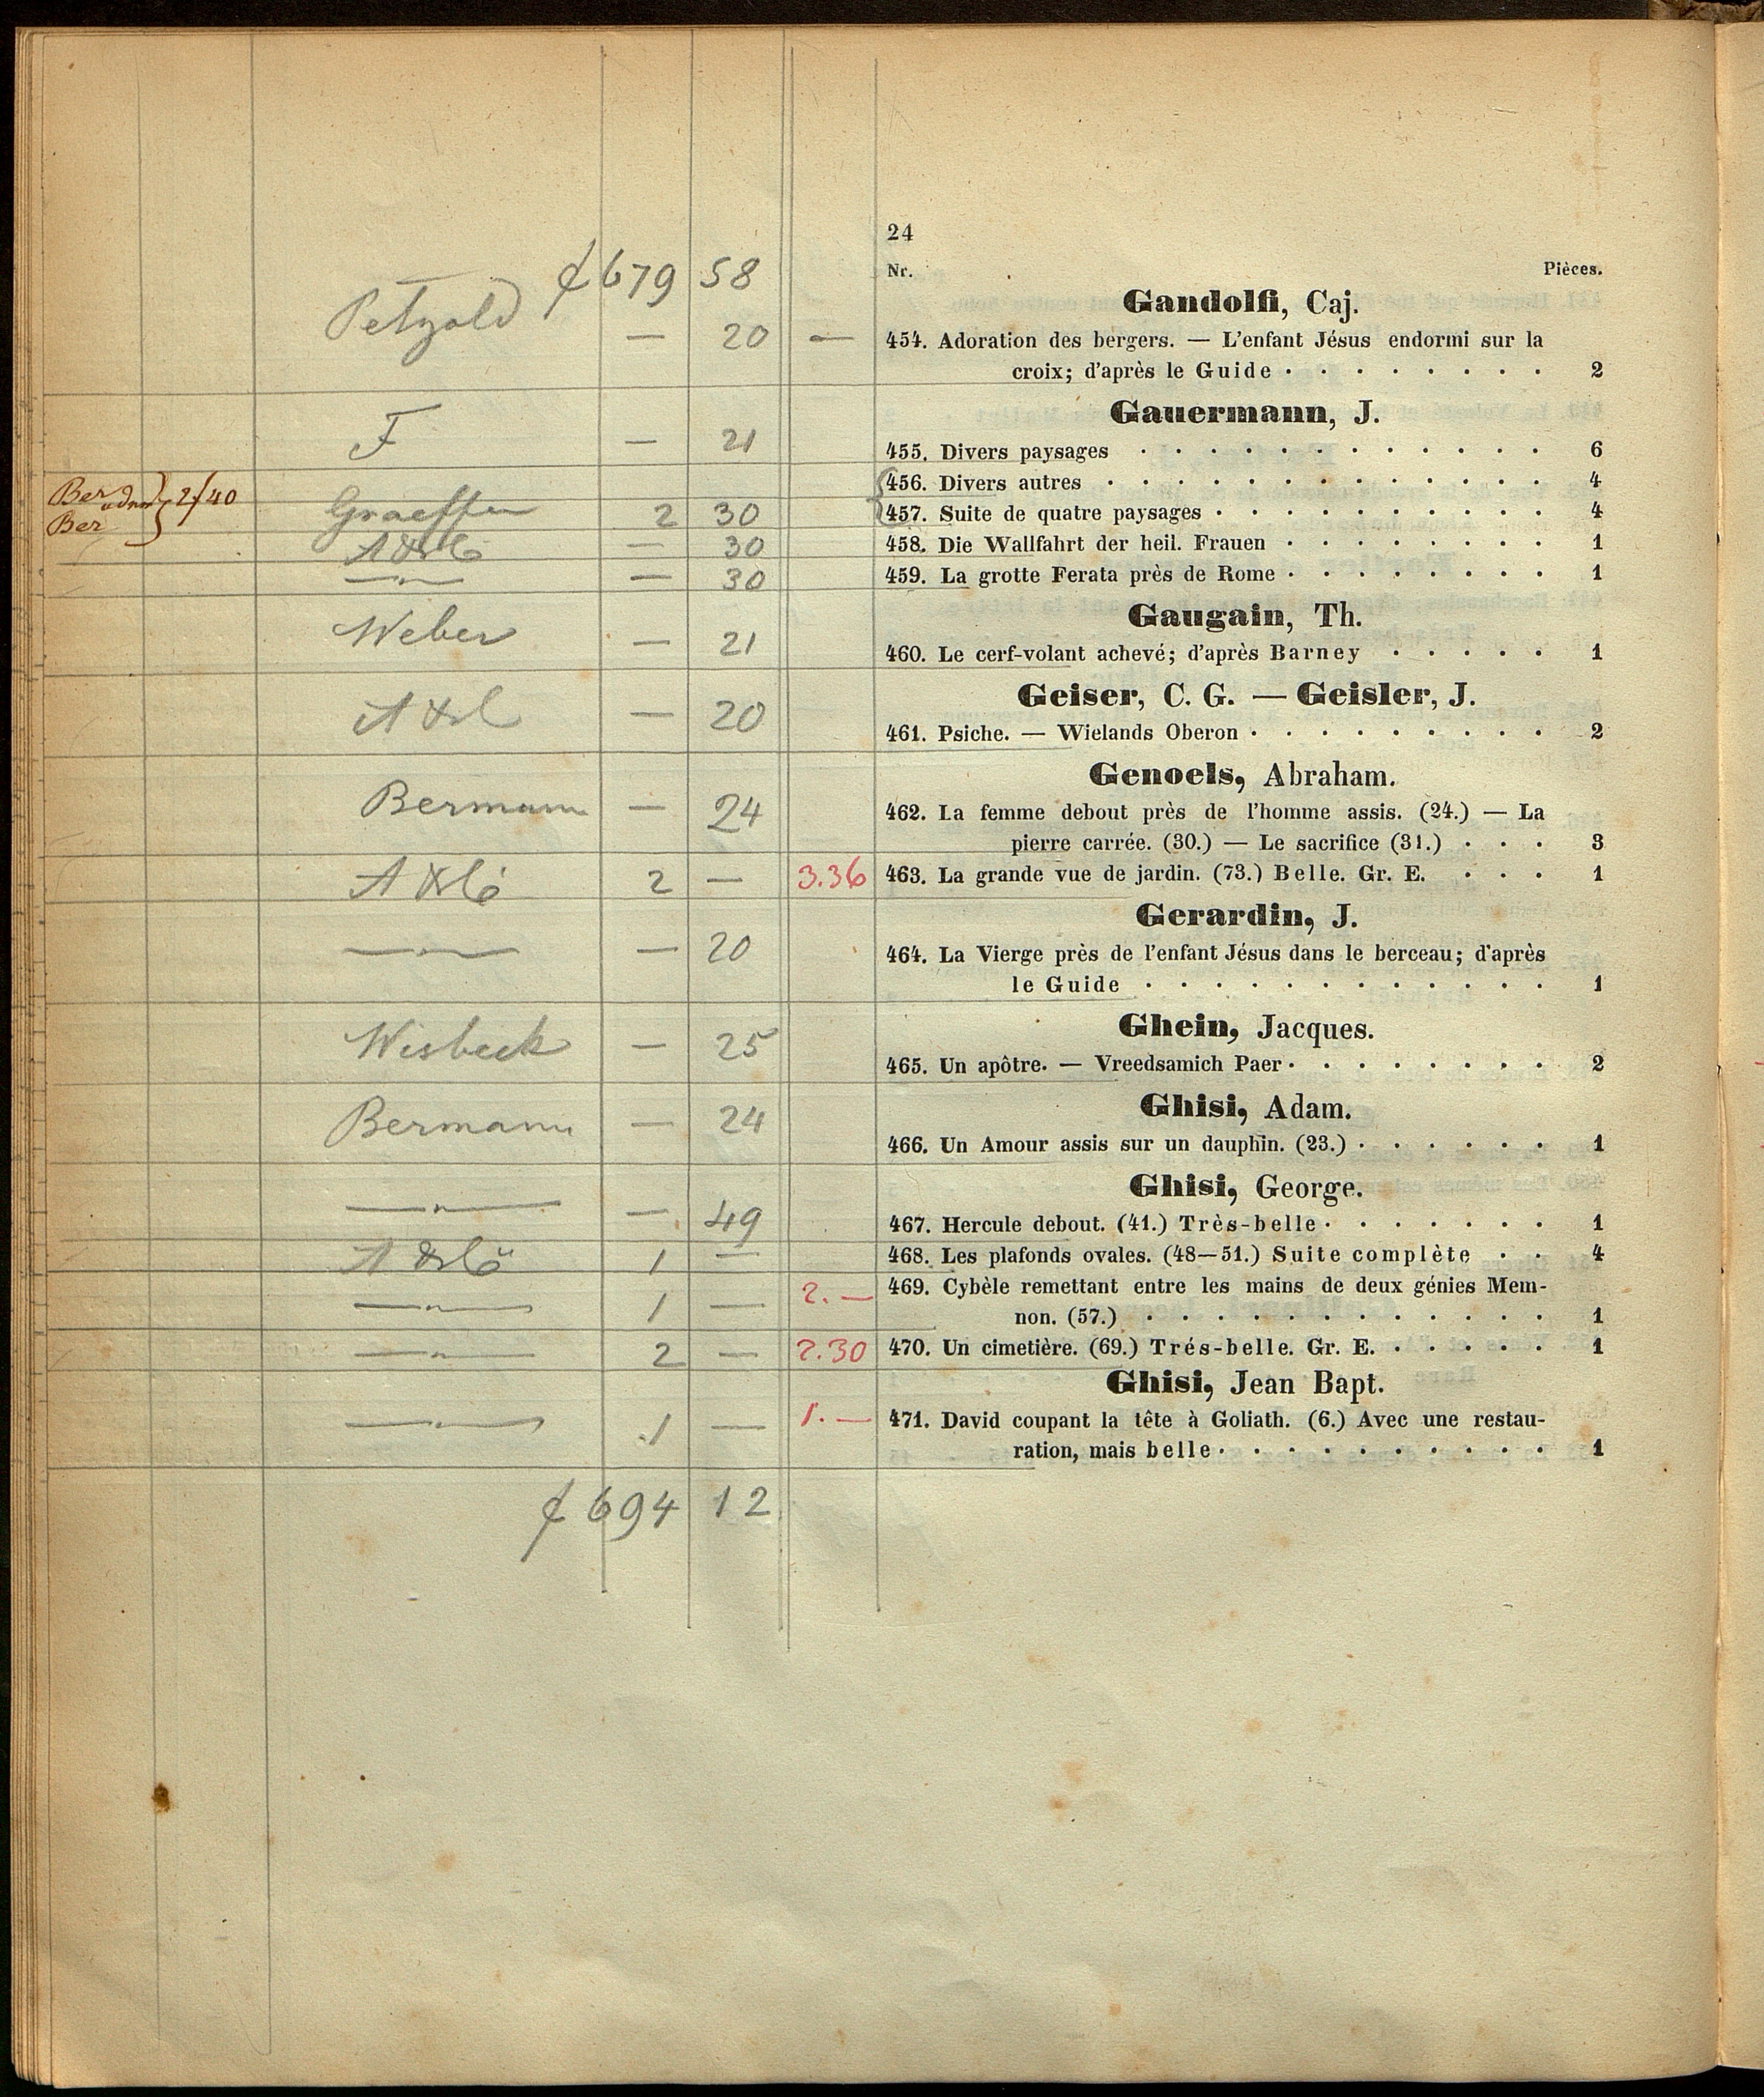 24
Nr. Pièces.
679 58
Gandolfi, Caj.
Petzold — 20 — 454. Adoration des bergers. — L'enfant Jésus endormi sur la
croix; d'après le Guide . . . . . . . . 2
Gauermann, J.
F — 21 455. Divers paysages . . . . . . . . . . . . 6
456. Divers autres . . . . . . . . . . . . . 4
Ber 2f40
Ber
Graeffer 2 30 457. Suite de quatre paysages . . . . . . . . . . 4
— 30 458. Die Wallfahrt der heil. Frauen . . . . . . . . 1
—"— — 30 459. La grotte Ferata près de Rome . . . . . . . . 1
Gaugain, Th.
Weber — 21 460. Le cerf-volant achevé; d'après Barney . . . . . 1
Geiser, C. G. — Geisler, J.
— 20 461. Psiche. — Wielands Oberon . . . . . . . . . 2
Genoels, Abraham.
Bermann — 24 462. La femme debout près de l'homme assis. (24.) — La
pierre carrée. (30.) — Le sacrifice (31.) . . . 3
2 — 3.36 463. La grande vue de jardin. (73.) Belle. Gr. E. . . . 1
Gerardin, J.
—"— — 20 464. La Vierge près de l'enfant Jésus dans le berceau; d'après
le Guide . . . . . . . . . . . . 1
Ghein, Jacques.
Wisbeck — 25 465. Un apôtre. — Vreedsamich Paer . . . . . . . . 2
Ghisi, Adam.
Bermann — 24 466. Un Amour assis sur un dauphin. (23.) . . . . . . 1
Ghisi, George.
—"— — 49 467. Hercule debout. (41.) Très-belle . . . . . . . 1
1 — 468. Les plafonds ovales. (48—51.) Suite complète . . 4
—"— 1 — 2.— 469. Cybèle remettant entre les mains de deux génies Mem-
non. (57.) . . . . . . . . . . . . 1
—"— 2 — 2.30 470. Un cimetière. (69.) Trés-belle. Gr. E. . . . . . 1
Ghisi, Jean Bapt.
—"— 1 — 1.— 471. David coupant la tête à Goliath. (6.) Avec une restau-
ration, mais belle . . . . . . . . . . 1
694 12